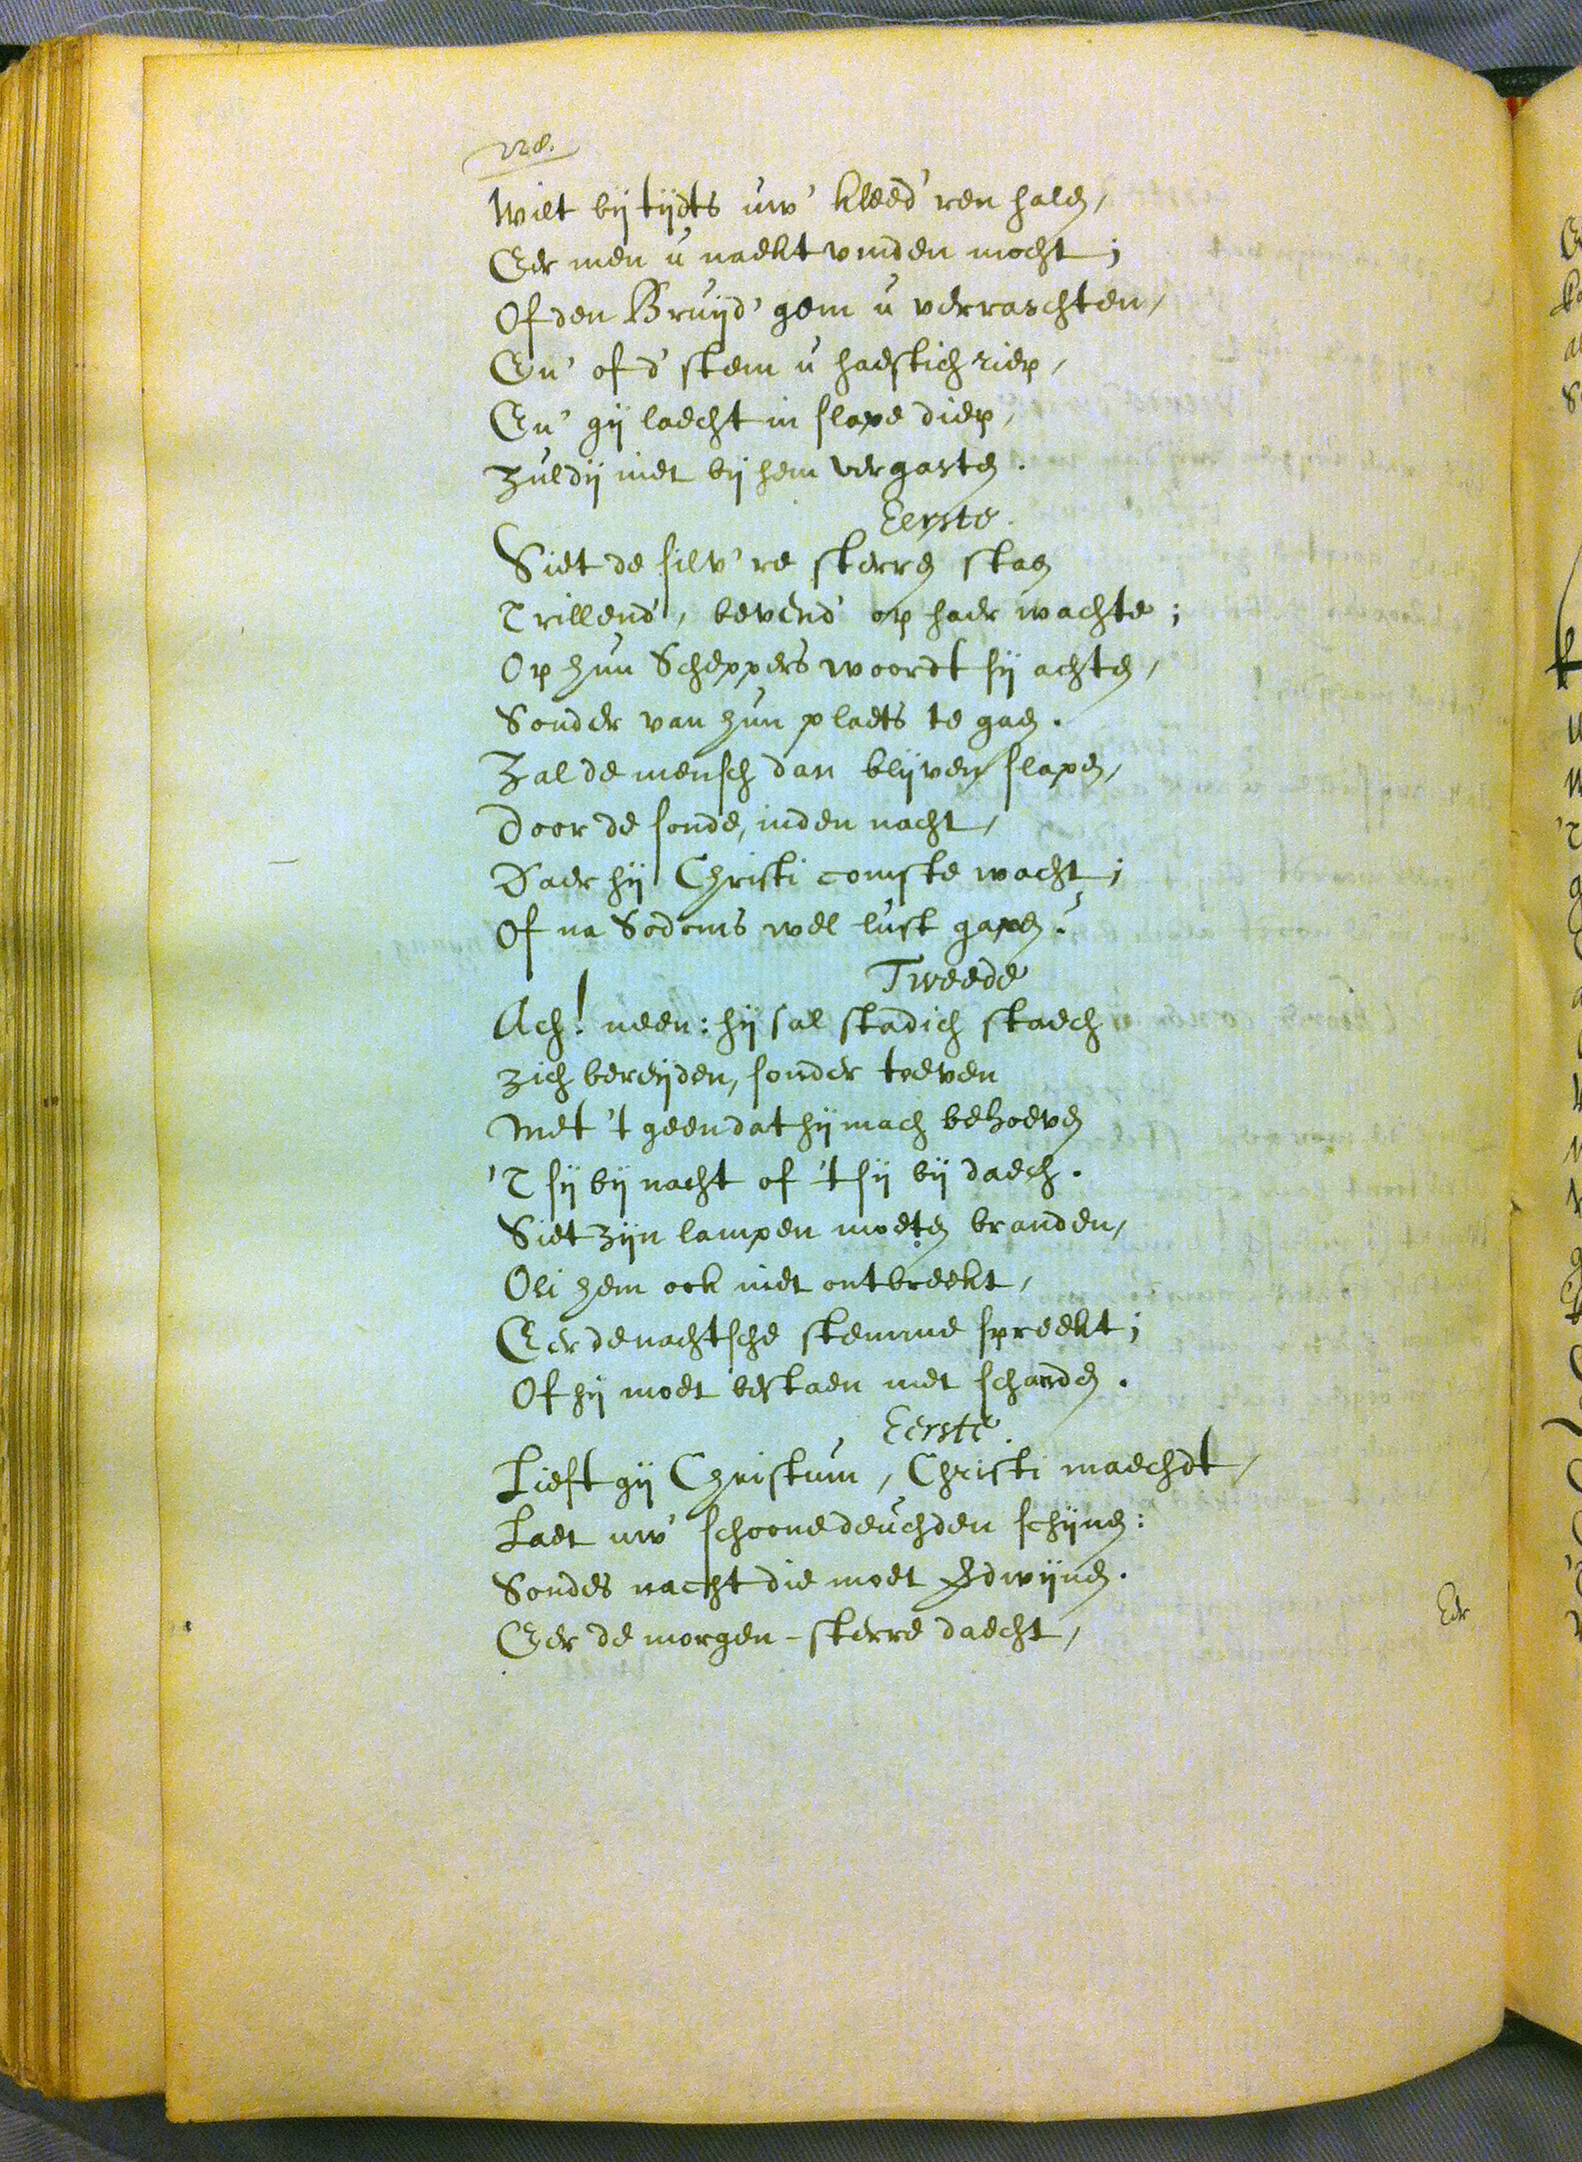 228.
Wilt bij tijdts uw' kleed'ren halen,
Eer men u naekt vinden mocht;
Of den Bruijd'gem u verraschten,
En' of d'stem u haestich riep,
En' gij laecht in slape diep,
Zuldij niet bij hem vergasten.
Eerste.
Siet de silv're sterren staen
Trillend', bevend' op haer wachte;
Op hun Scheppers woordt sij achten,
Sonder van hun plaets te gaen.
Zal de mensch dan blijven slapen,
Door de sonde, inden nacht,
Daer hij Christi comste wacht;
Of na Sodoms wellust gapen?
Tweede
Ach! neen: hij sal stadich staech
Zich bereijden, sonder toeven
Met 't geen dat hij mach behoeven
'T sij bij nacht of 't sij bij daech.
Siet zijn lampen moeten branden,
Oli hem ook niet ontbreekt,
Eer de nachtsche stemme spreekt;
Of hij moet bestaen met schanden.
Eerste.
Lieft gij Christum, Christi maechdt,
Laet uw' schoone deuchden schijnen:
Sondes nacht die moet verdwijnen.
Eer de morgen-sterre daecht,
Eer